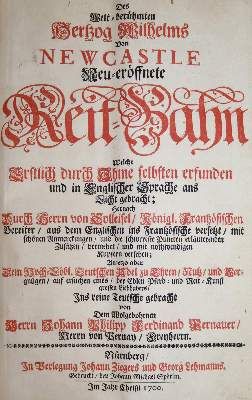 Des
Welt-berühmten
Hertzog Wilhelms
Von
NEWCASTLE
Neu-eröffnete
Reit-Bahn
Welche
Erstlich durch Ihne selbsten erfunden
und in Englischer Sprache ans
Licht gebracht;
Hernach
Durch Herrn von Solleisel, Königl. Frantzösischen
Bereiter, aus dem Englischen ins Frantzösische versetzt, mit
schönen Anmerckungen, und die schwereste Puncten erläuterenden
Zusätzen, vermehrt, und mit nothwendigen
Kupfern versehen;
Anietzo aber
Dem Hoch-Löbl. Teutschen Adel zu Ehren, Nutz, und Ver-
gnügen, auf ersuchen eines, der Edlen Pferd- und Reit-Kunst
grossen Liebhabers,
Ins reine Teutsche gebracht
von
Dem Wolgebohrnen
Herrn Johann Philipp Ferdinand Pernauer,
Herrn von Perney, Freyherrn.
Nürnberg,
In Verlegung Johann Ziegers und Georg Lehmanns.
Gedruckt, bey Johann Michael Spörlin.
Im Jahr Christi 1700.